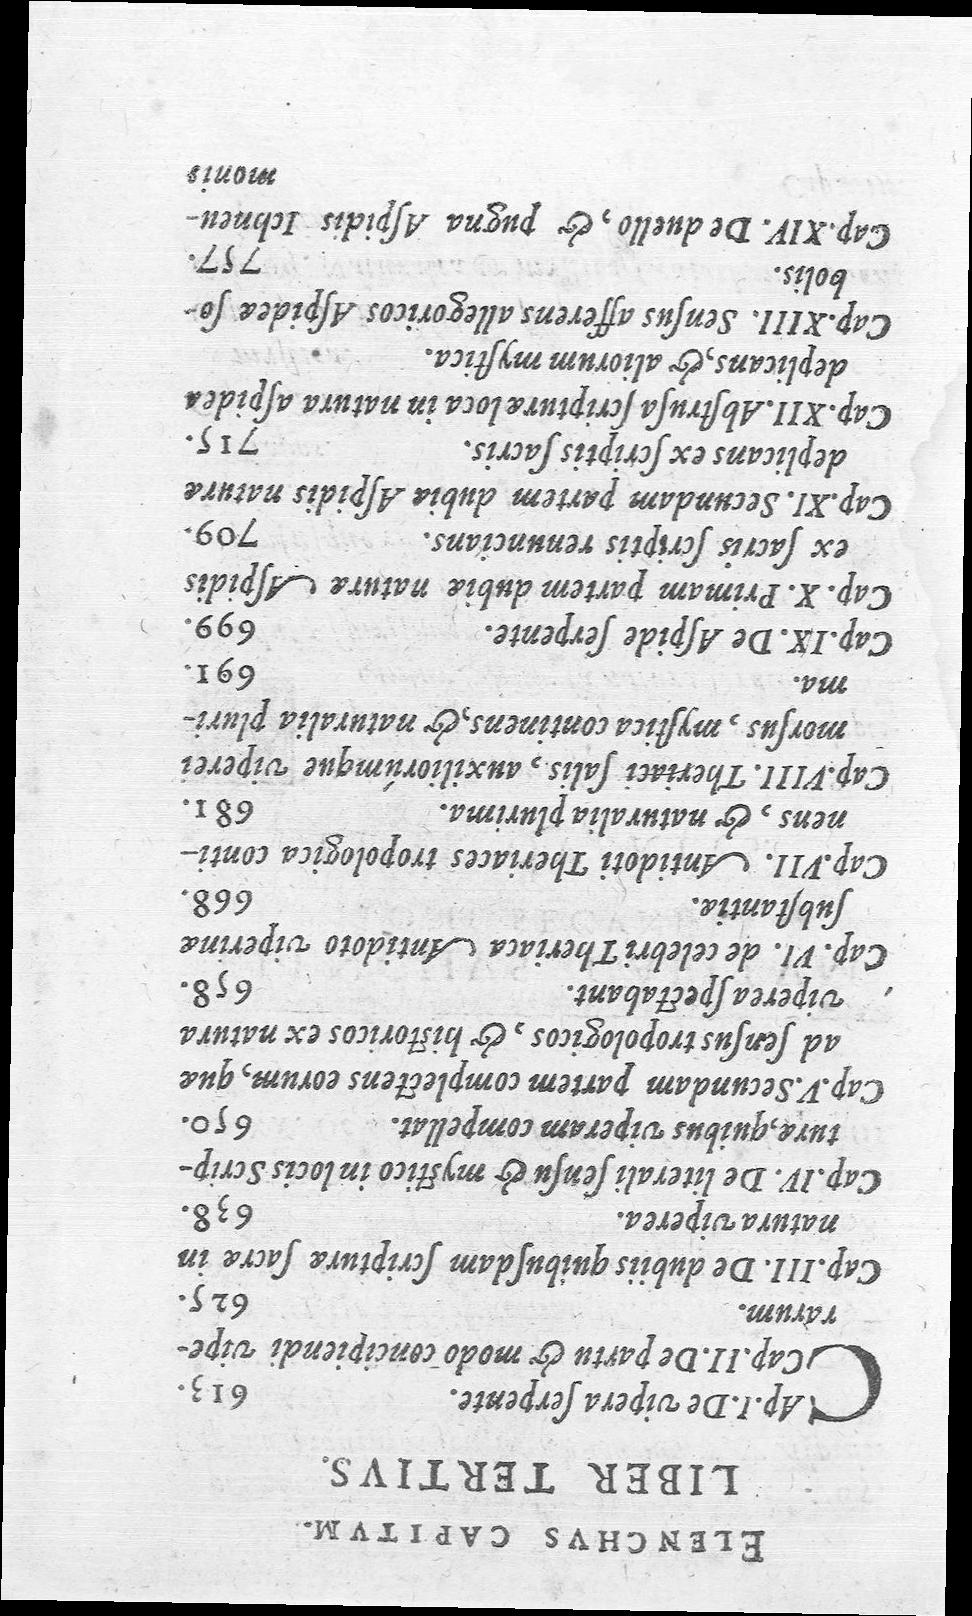 ELENCHVS CAPITVM.
LIBER TERTIVS.
CAp. I. De vipera ſerpente. 613.
Cap. II. De partu & modo concipiendi vipe-
rarum. 625.
Cap. III. De dubiis quibuſdam ſcripturæ ſacræ in
natura viperea. 638.
Cap. IV. De literali ſenſu & myſtico in locis Scrip-
turæ, quibus viperam compellat. 650.
Cap. V. Secundam partem complectens eorum, quæ
ad ſenſus tropologicos, & historicos ex natura
viperea ſpectabant. 658.
Cap. VI. de celebri Theriaca Antidoto viperinæ
ſubſtantiæ. 668.
Cap. VII. Antidoti Theriaces tropologica conti-
nens, & naturalia plurima. 681.
Cap. VIII. Theriaci ſalis, auxiliorúmque viperei
morſus, myſtica continens, & naturalia pluri-
ma. 691.
Cap. IX. De Aſpide ſerpente. 699.
Cap. X. Primam partem dubiæ naturæ Aſpidis
ex ſacris ſcriptis renuncians. 709.
Cap. XI. Secundam partem dubiæ Aſpidis naturæ
deplicans ex ſcriptis ſacris. 715.
Cap. XII. Abſtruſa ſcripturæ loca in natura aſpidea
deplicans, & aliorum myſtica.
Cap. XIII. Senſus afferens allegoricos Aſpideæ ſo-
bolis. 757.
Cap. XIV. De duello, & pugna Aſpidis Ichneu-
monis